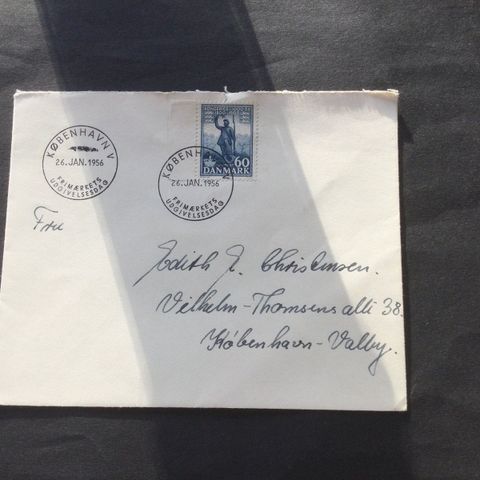 KØBENHAVN V
26. JAN. 1956
FRIMÆRKETS
UDGIVELSESDAG
60
DANMARK
KØBENHAVN
26. JAN. 1956
FRIMÆRKETS
UDGIVELSESDAG
Fru
Edith E. Christensen.
Vilhelm-Thomsens allé 38.
København-Valby.